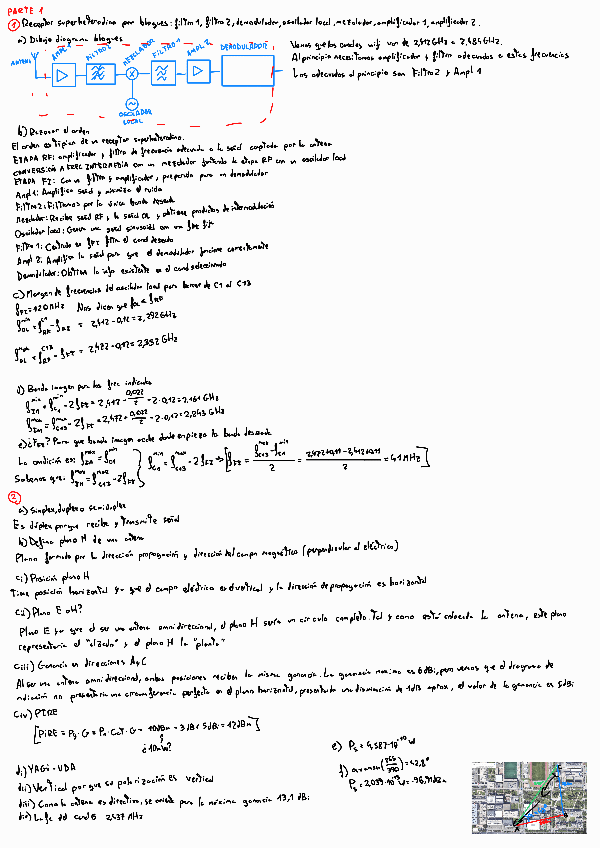 PARTE 1
① Receptor superheterodino por bloques: filtro 1, filtro 2, demodulador, oscilador local, mezclador, amplificador 1, amplificador 2.
a) Dibujo diagrama bloques
ANTENA
AMPL 1
FILTRO 2
MEZCLADOR
FILTRO 1
AMPL 2
DEMODULADOR
OSCILADOR LOCAL
Vemos que los canales wifi van de 2,412GHz a 2,484GHz.
Al principio necesitamos amplificador y filtro adecuados a estas frecuencias
Los adecuados al principio son Filtro 2 y Ampl 1
b) Razonar el orden
El orden es típico de un receptor superheterodino.
ETAPA RF: amplificador y filtro de frecuencia adecuada a la señal captada por la antena
CONVERSIÓN A FREC INTERMEDIA con un mezclador juntando la etapa RF con un oscilador local
ETAPA FI: Con un filtro y amplificador, preparada para un demodulador
Ampl 1: Amplifica señal y minimiza el ruido
Filtro 2: Filtramos por la única banda deseada
Mezclador: Recibe señal RF y la señal OL y obtiene productos de intermodulación
Oscilador local: Genera una señal sinusoidal con una frec fija
Filtro 1: Centrado en fFI filtra el canal deseado
Ampl 2: Amplifica la señal para que el demodulador funcione correctamente
Demodulador: Obtiene la info existente en el canal seleccionado
c) Margen de frecuencias del oscilador local para barrer de C1 al C13
fFI = 120 MHz Nos dicen que fOL < fRF
fOL min = fRF C1 - fFI = 2,412 - 0,12 = 2,292 GHz
fOL max = fRF C13 - fFI = 2,472 - 0,12 = 2,352 GHz
d) Banda imagen para las frec indicadas
fIM min = fC1 min - 2fFI = 2,412 - 0,022/2 - 2·0,12 = 2,161 GHz
fIM max = fC13 max - 2fFI = 2,472 + 0,022/2 - 2·0,12 = 2,243 GHz
e) ¿fFI? Para que banda imagen acabe donde empieza la banda deseada
La condición es: fIM max = fC1 min
Sabemos que: fIM max = fC13 max - 2fFI
fC1 min = fC13 max - 2fFI ⇒ [fFI = (fC13 max - fC1 min)/2 = (2,472+0,011-2,412+0,011)/2 = 41 MHz]
②
a) Simplex, duplex o semiduplex
Es dúplex porque recibe y transmite señal
b) Define plano H de una antena
Plano formado por la dirección propagación y dirección del campo magnético (perpendicular al eléctrico)
ci) Posición plano H
Tiene posición horizontal ya que el campo eléctrico es vertical y la dirección de propagación es horizontal
cii) Plano E o H?
Plano E ya que al ser una antena omnidireccional, el plano H sería un círculo completo. Tal y como está colocada la antena, este plano
representaría el "alzado" y el plano H la "planta"
ciii) Ganancia en direcciones A y C
Al ser una antena omnidireccional, ambas posiciones reciben la misma ganancia. La ganancia máxima es 6dBi, pero vemos que el diagrama de
radiación no presentaría una circunferencia perfecta en el plano horizontal, presentando una disminución de 1dB aprox, el valor de la ganancia es 5dBi
civ) PIRE
[PIRE = PS·G = Pn·CaT·G = 10dBm - 3dB + 5dBi = 12dBm]
¿10mW?
di) YAGI-UDA
dii) Vertical porque su polarización es vertical
diii) Como la antena es directiva, se orienta para la máxima ganancia 13,1 dBi
div) La fc del canal 6 2,437 MHz
e) PR = 4,587·10⁻¹⁰ W